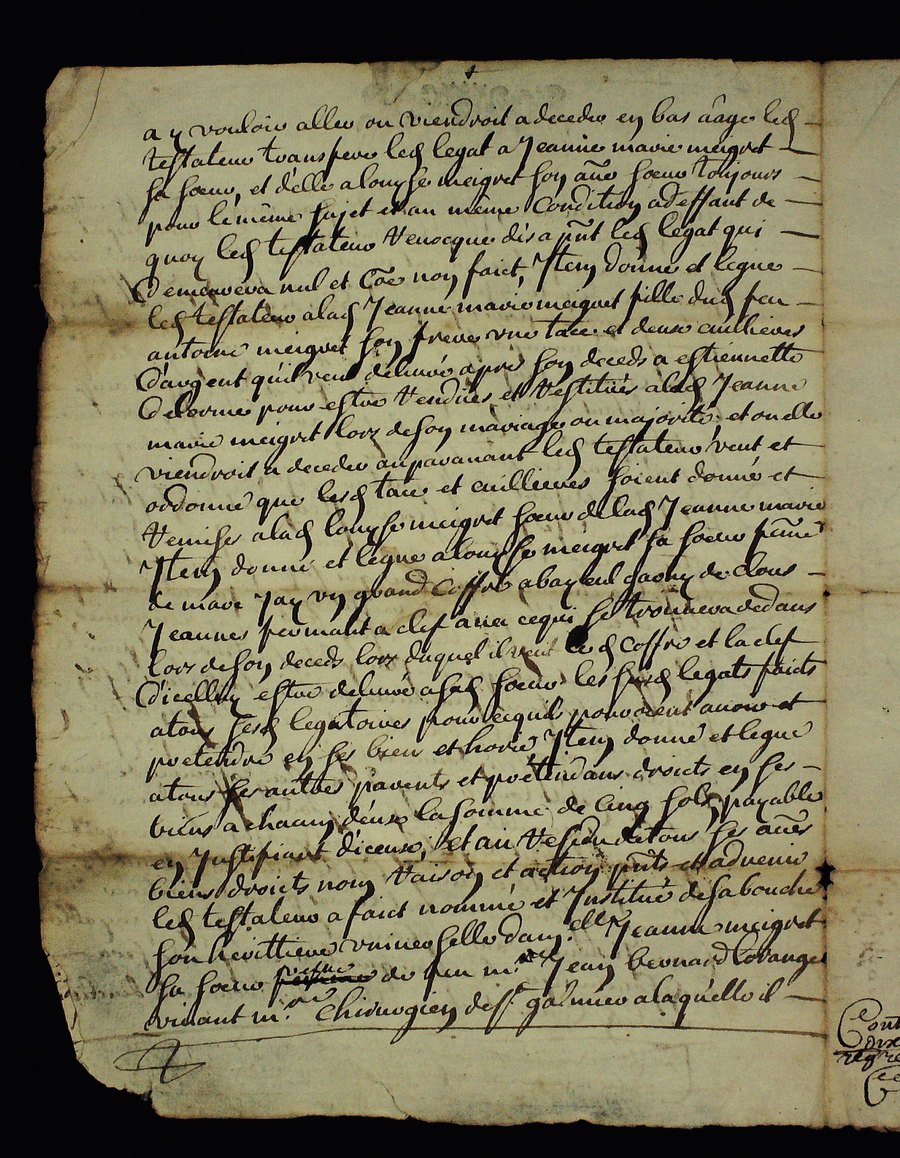 a y vouloir aller ou viendroit a deceder en bas aage led
testateur transfere led legat a Jeanne marie meigret
sa soeur, et d'elle a louyse meigret son aûe soeur toujours
pour le même sujet et au même Condition a deffaut de
quoy led testateur revocque dés a pñt led legat qui
demeurera nul et Coe non faict, Item donne et legue
led testateur a lad Jeanne marie meigret fille dud feu
antoine meigret son frere une tace et deux cuillieres
d'argent qu'il veut délivré apres son deceds a estiennette
delorme pour estre rendües et restitüés a lad Jeanne
marie meigret lors de son mariage ou majorité, et ou elle
viendroit a deceder auparavant led testateur veut et
ordonne que lesd tace et cuillieres soient donné et
remises a lad louyse meigret soeur de lad Jeanne marie
Item donne et legue a louyse meigret sa soeur
de marc Jay un grand Coffre a bayeul garny de Clous
Jeaunes fermant a clef avec ce qui se trouvera dedans
lors de son deceds lors duquel il veut led coffre et la clef
d'icelluy estre delivré a sad soeur les susd legats faits
a tous sesd legatoires pour ce quils pouvoient avoir et
pretendre en ses bien et horie, Item donne et legue
a tous ses autres parents et prétendans droicts en ses
biens a chacun d'eux la somme de Cinq sols payable
en Justifiant d'iceux, et au residu de tous ses aûes
biens droicts nom raison et action pñts et advenir
led testateur a faict nommé et Institué de sa bouche
son herittiere universelle dam.elle Jeanne meigret
sa soeur veufve de feu m.re Jean bernard Coranget
vivant m.re Chirurgien de S.t galmier a laquelle il
Cont